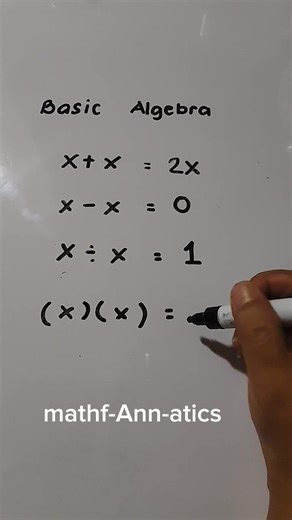 Basic Algebra
x + x = 2x
x - x = 0
x ÷ x = 1
(x)(x) =
mathf-Ann-atics